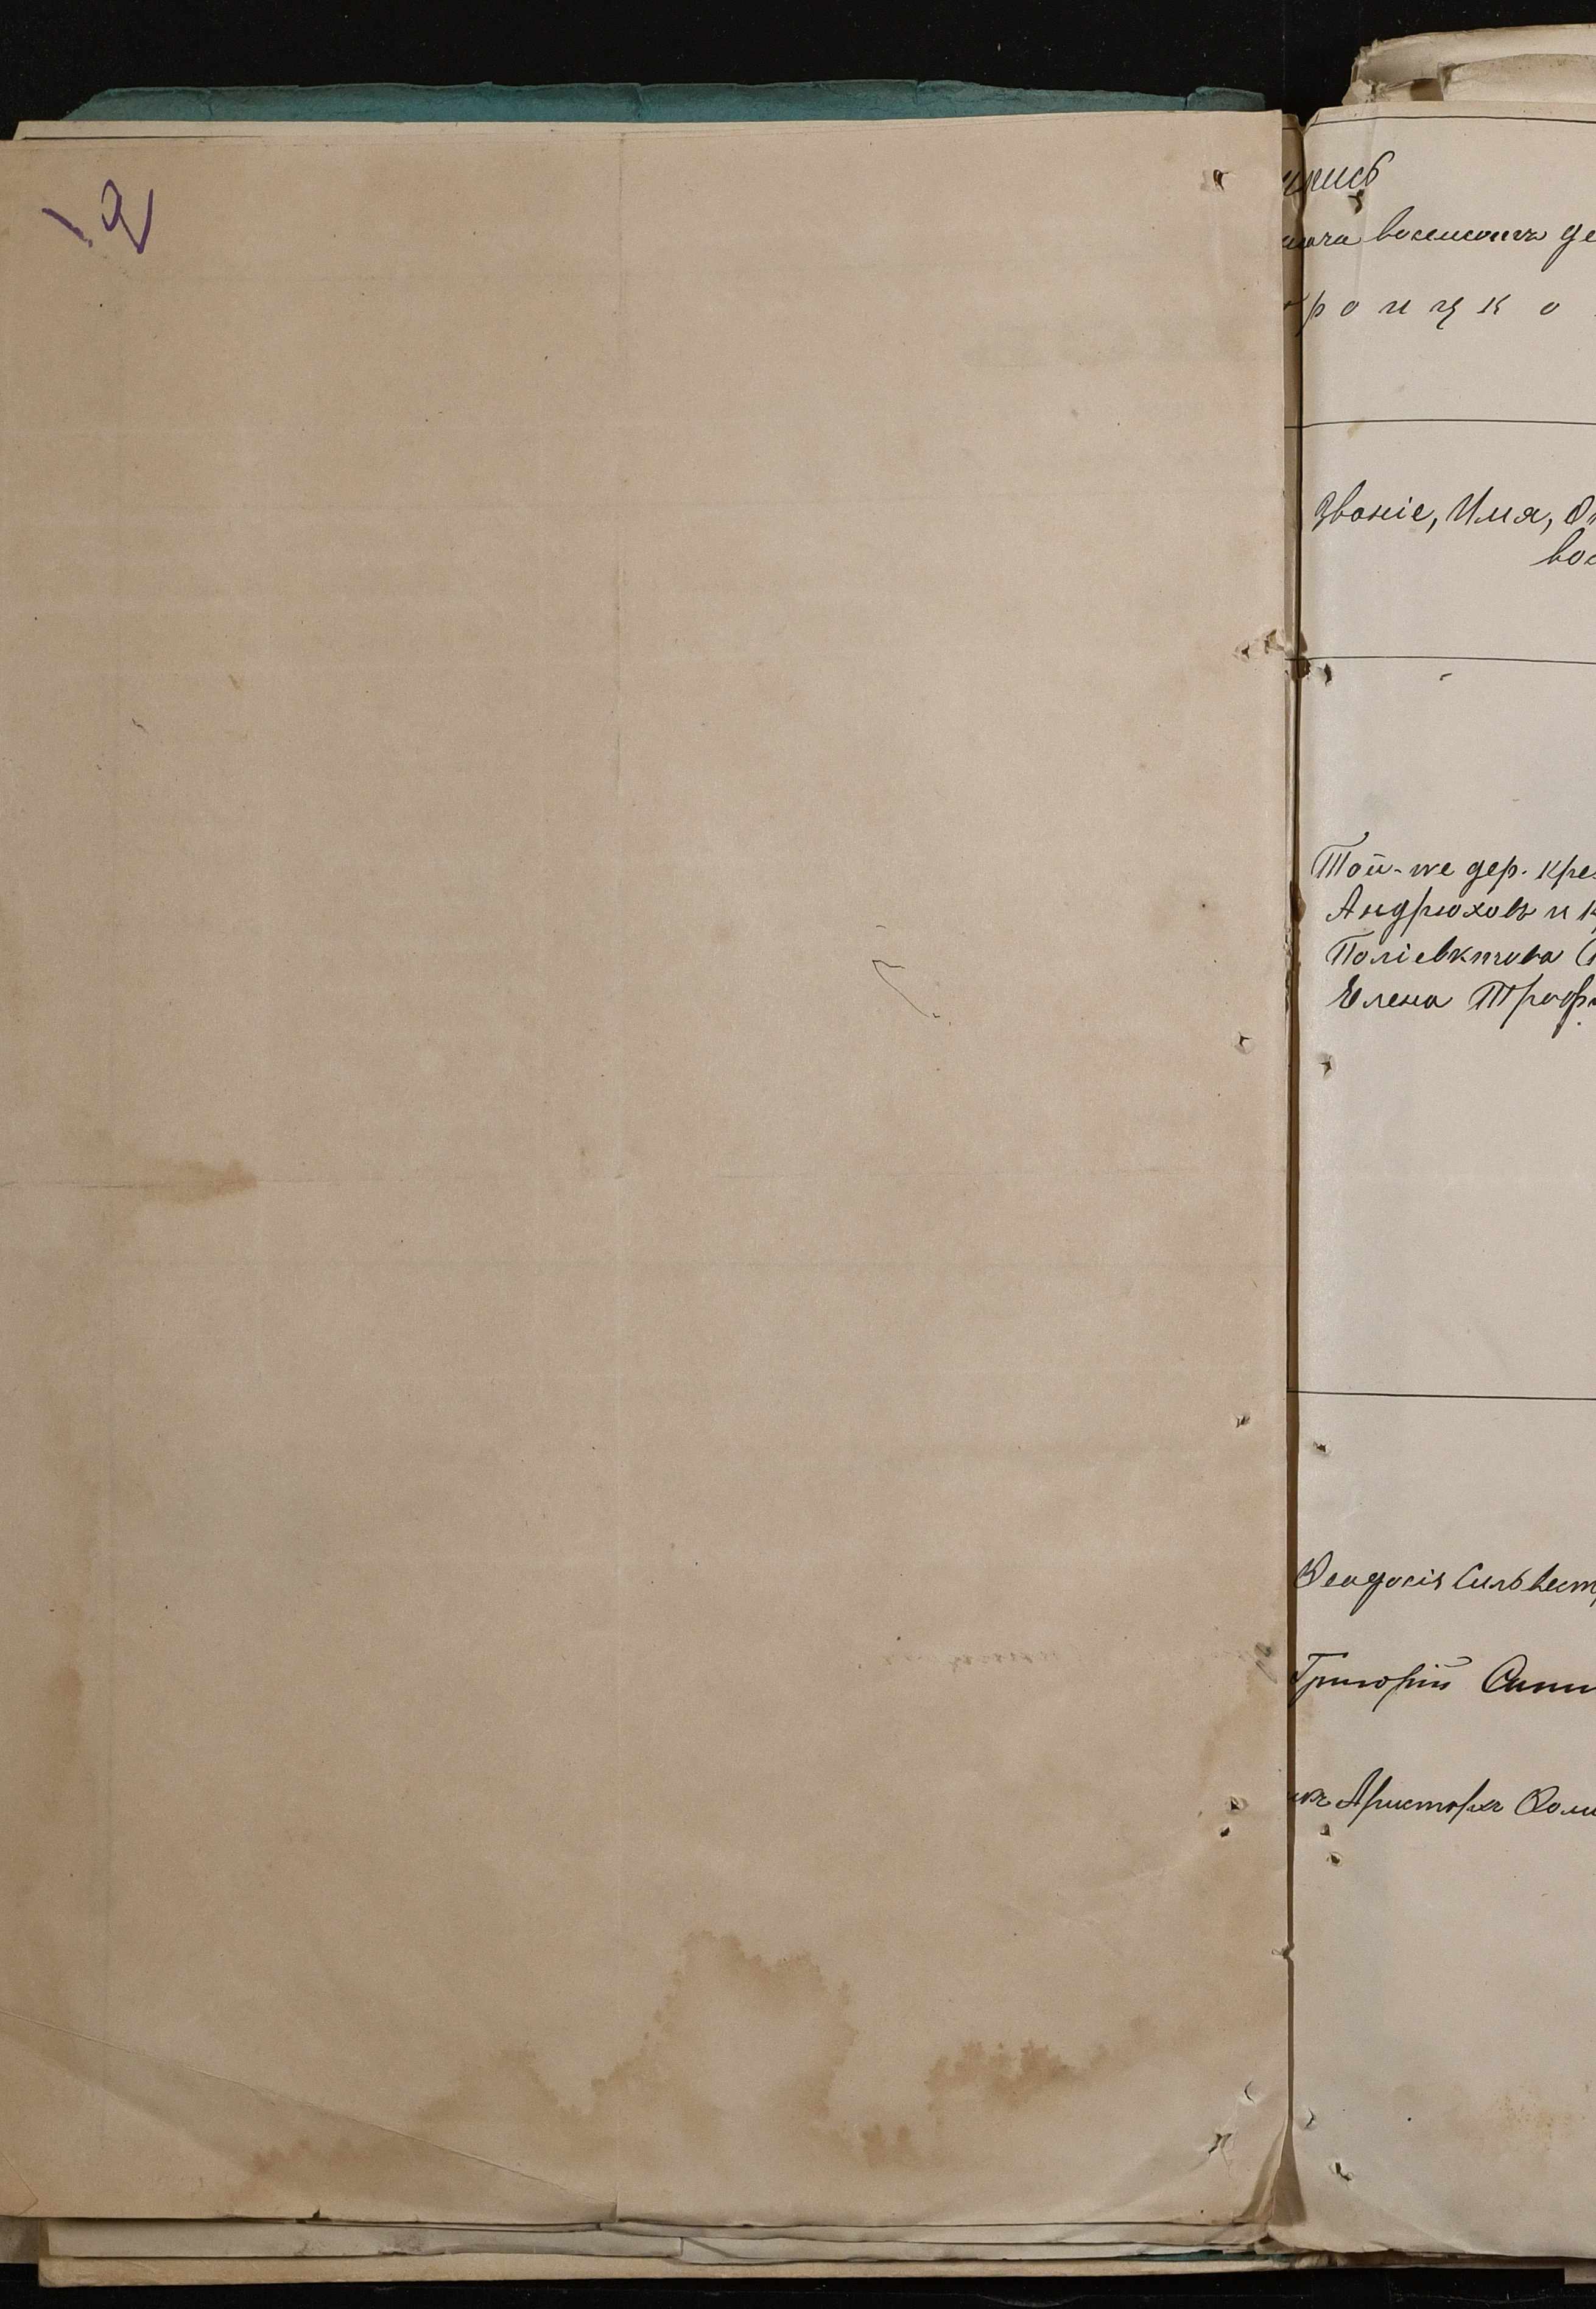 2
пись
восемсотъ де
р о и ц к о
Званіе, Имя, О
вос
Той-же дер. кре
Андрюховъ и к
Поліевктова (
Елена Троф
Ѳеодосія Сильвест
Григорій
Аристархъ